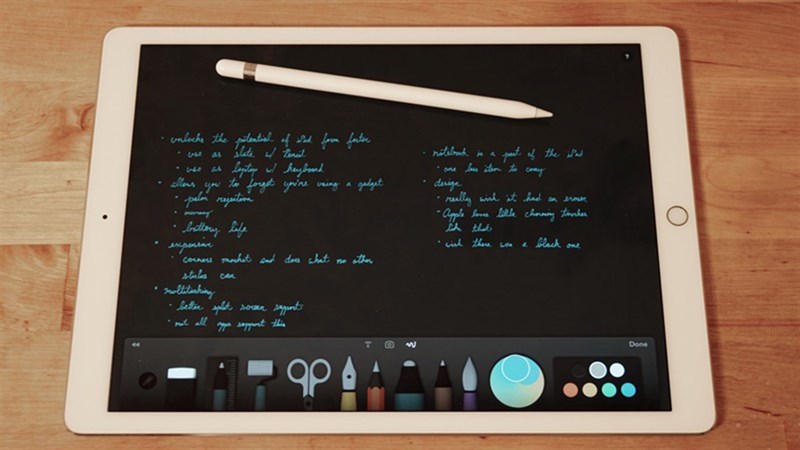 · unlocks the potential of iPad form factor
· use as slate w/ Pencil
· use as laptop w/ keyboard
· allows you to forget you're using a gadget
· palm rejection
· accuracy
· battery life
· expensive
· corners market and does what no other
stylus can
· multitasking
· better split screen support
· not all apps support this
· notebook is a part of the iPad
· one less item to carry
· design
· really wish it had an eraser
· Apple loves little charming touches
like that
· wish there was a black one
?
<<
T
Done